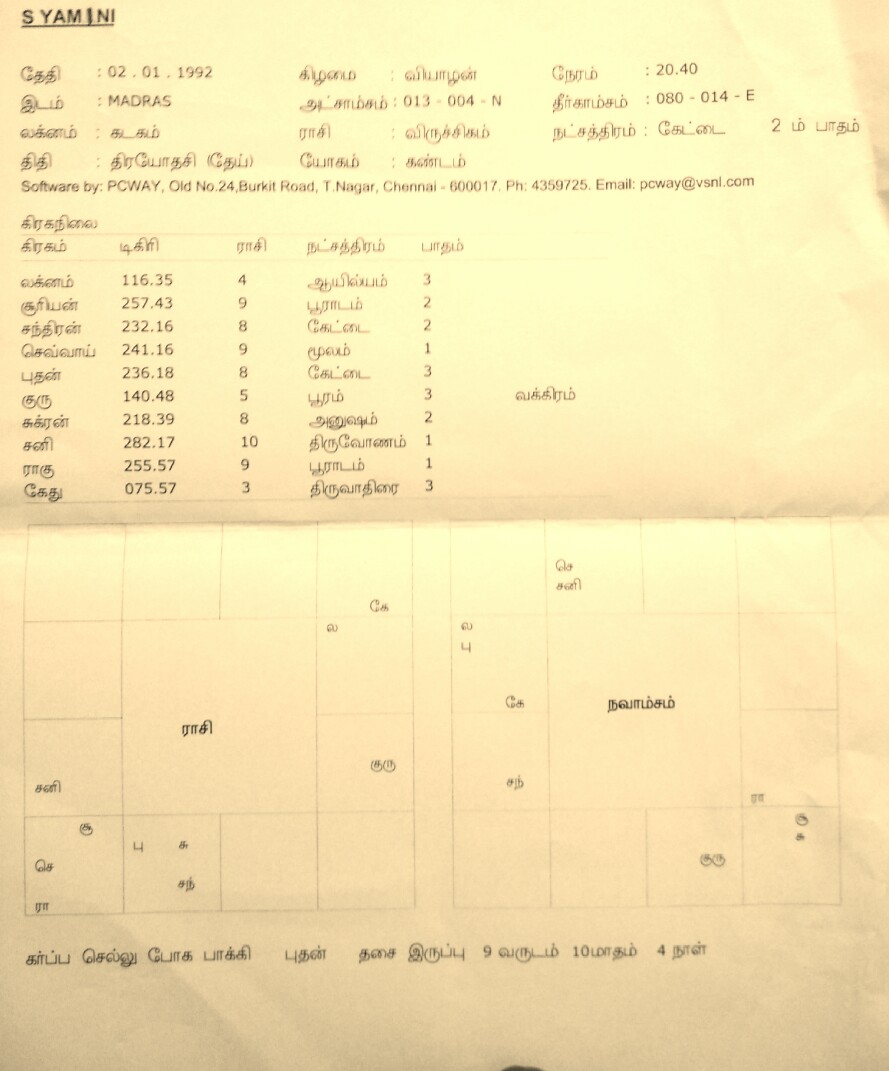 S YAMINI
தேதி : 02 . 01 . 1992 கிழமை : வியாழன் நேரம் : 20.40
இடம் : MADRAS அட்சாம்சம் : 013 - 004 - N தீர்காம்சம் : 080 - 014 - E
லக்னம் : கடகம் ராசி : விருச்சிகம் நட்சத்திரம் : கேட்டை 2 ம் பாதம்
திதி : திரயோதசி (தேய்) யோகம் : கண்டம்
Software by: PCWAY, Old No.24,Burkit Road, T.Nagar, Chennai - 600017. Ph: 4359725. Email: pcway@vsnl.com
கிரகநிலை
கிரகம் டிகிரி ராசி நட்சத்திரம் பாதம்
லக்னம் 116.35 4 ஆயில்யம் 3
சூரியன் 257.43 9 பூராடம் 2
சந்திரன் 232.16 8 கேட்டை 2
செவ்வாய் 241.16 9 மூலம் 1
புதன் 236.18 8 கேட்டை 3
குரு 140.48 5 பூரம் 3 வக்கிரம்
சுக்ரன் 218.39 8 அனுஷம் 2
சனி 282.17 10 திருவோணம் 1
ராகு 255.57 9 பூராடம் 1
கேது 075.57 3 திருவாதிரை 3
கே
ல
ராசி
குரு
சனி
சூ
செ
ரா
பு சு
சந்
செ
சனி
ல
பு
கே
நவாம்சம்
சந்
ரா
குரு
சூ
சு
கர்ப்ப செல்லு போக பாக்கி புதன் தசை இருப்பு 9 வருடம் 10மாதம் 4 நாள்